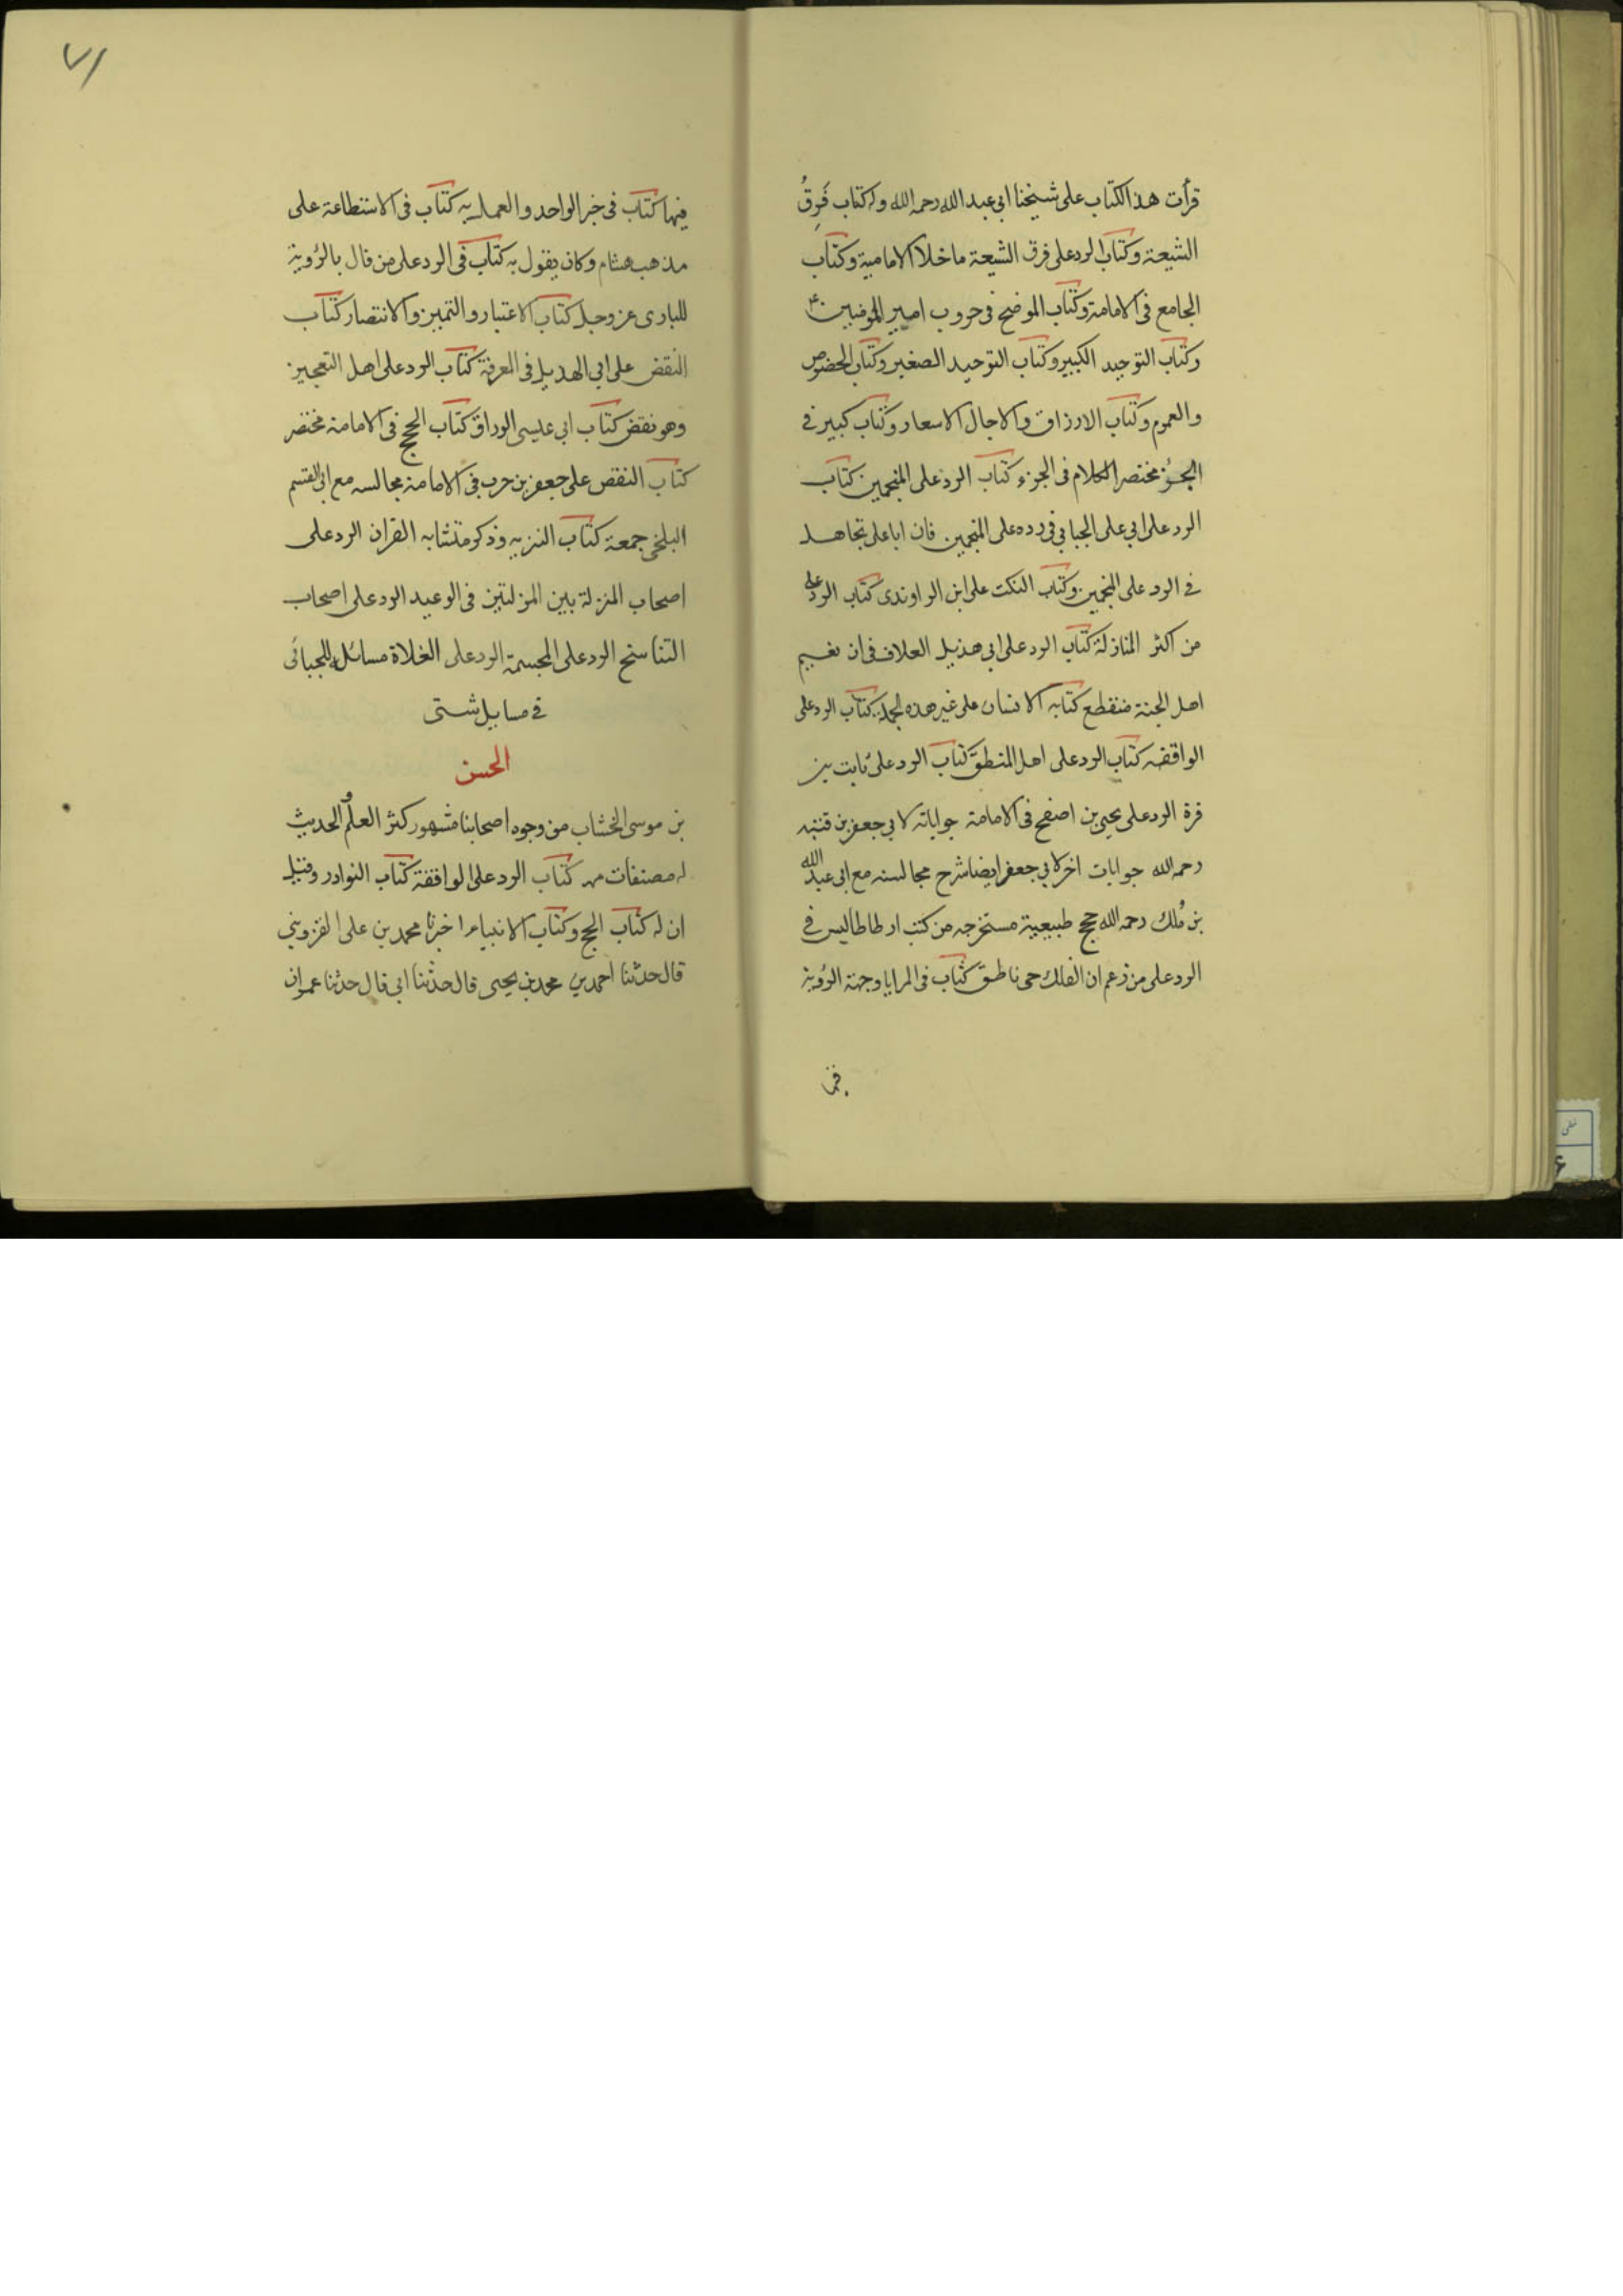 قرأت هذا الكتاب على شيخنا ابى عبد الله رحمه الله وله كتاب فرق
الشيعة وكتاب الرد على فرق الشيعة ما خلا الامامية وكتاب
الجامع فى الامامة وكتاب الموضح فى حروب امير المومنين ع
وكتاب التوحيد الكبير وكتاب التوحيد الصغير وكتاب الخصوص
والعموم وكتاب الارزاق والاجال الاسعار وكتاب كبير فى
الجزء مختصر الكلام فى الجزء كتاب الرد على المنجمين كتاب
الرد على ابي على الجبايي فى رده على المنجمين فان ابا على تجاهل
فى الرد على المنجمين وكتاب النكت على ابن الراوندى كتاب الرد على
من اكثر المنازلة كتاب الرد على ابي هذيل العلاف فى ان نعيم
اهل الجنة منقطع كتابه الانسان على غير هذه الجملة كتاب الرد على
الواقفه كتاب الرد على اهل المنطق كتاب الرد على ثابت بن
قرة الرد على يحيى بن اصفح فى الامامة جواباته لابي جعفر بن قبه
رحمه الله جوابات اخر لابي جعفر ايضا شرح مجالسه مع ابي عبد الله
بن مُلك رحمه الله حجج طبيعية مستخرجه من كتب ارطاطاليس فى
الرد على من زعم ان الفلك حى ناطق كتاب فى المرايا وجهة الرؤية
فيها
٧١
فيها كتاب فى خبر الواحد والعمل به كتاب فى الاستطاعة على
مذهب هشام وكان يقول به كتاب فى الرد على من قال بالرؤية
للبارى عز وجل كتاب الاعتبار والتميز والانتصار كتاب
النقض على ابي الهذيل فى المعرفة كتاب الرد على اهل التعجيز
وهو نقض كتاب ابى عيسى الوراق كتاب الحجج فى الامامة مختصر
كتاب النقض على جعفر بن حرب فى الامامة مجالسه مع ابي القسم
البلخى جمعة كتاب التنزيه وذكر متشابه القران الرد على
اصحاب المنزلة بين المنزلتين فى الوعيد الرد على اصحاب
التناسخ الرد على المجسمة الرد على الغلاة مسائله للجبائى
فى مسايل شتى
الحسن
بن موسى الخشاب من وجوه اصحابنا مشهور كثر العلم والحديث
له مصنفات منه كتاب الرد على الواقفة كتاب النوادر وقيل
ان له كتاب الحج وكتاب الانبياء اخبرنا محمد بن على القزويني
قال حدثنا احمد بن محمد بن يحيى قال حدثنا ابى قال حدثنا عمران